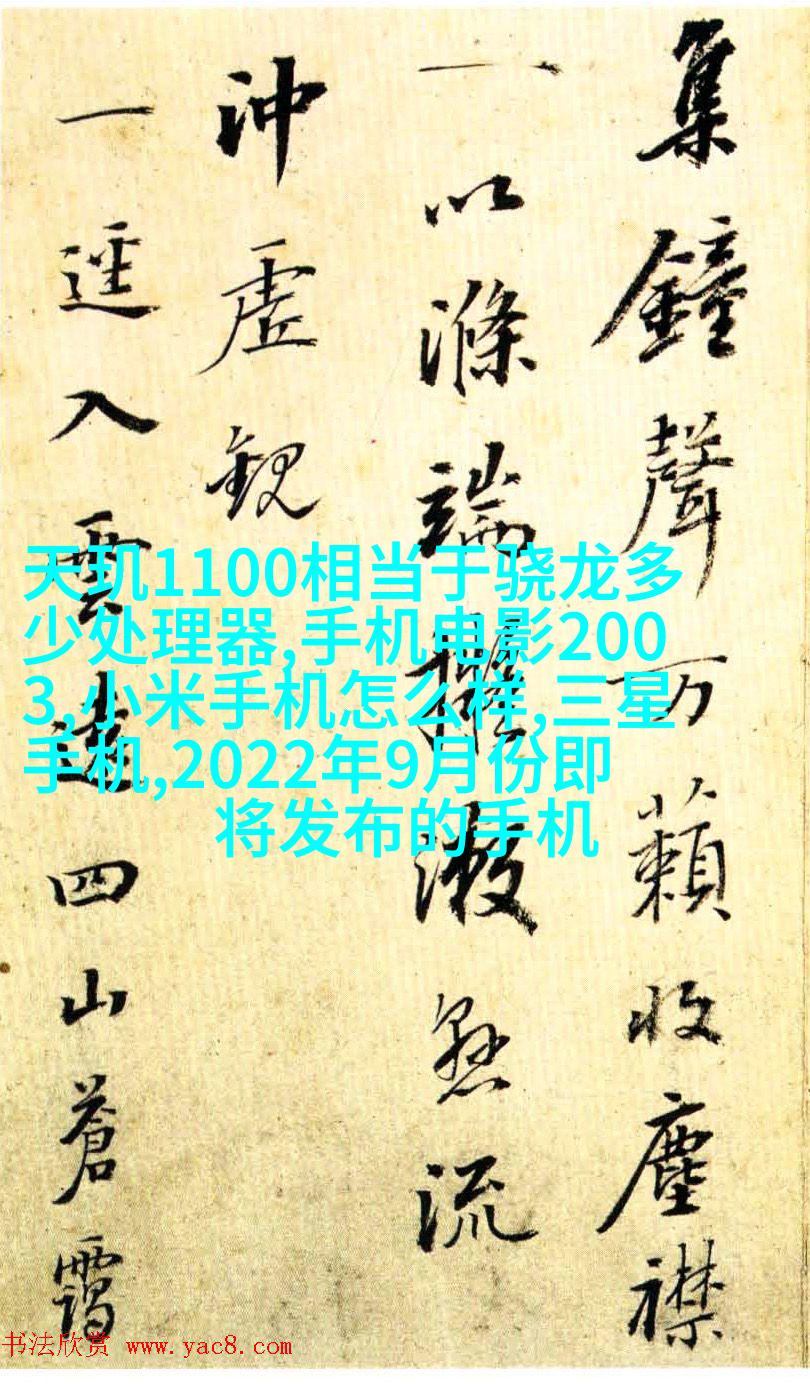 集鐘聲万藾收塵襟
一以滌端漱流
沖虛觀
一逕入雲遠四山蒼靄
天玑1100相当于骁龙多
少处理器,手机电影200
3,小米手机怎么样,三星
手机,2022年9月份即
将发布的手机
书法欣赏 www.yac8.com